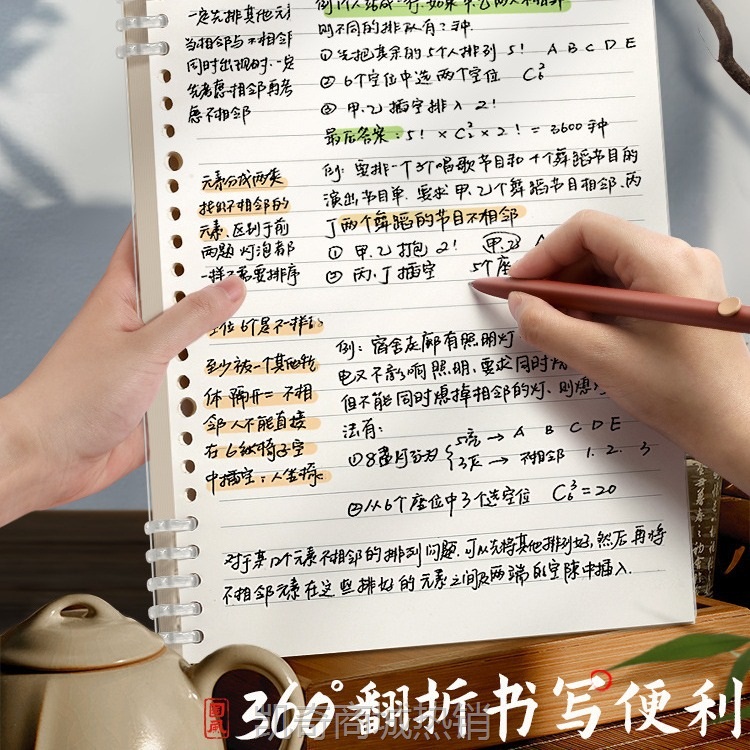 一定先排其他元素
当相邻与不相邻
同时出现时.一定
先考虑相邻再考
虑不相邻
则不同的排队有?种.
①先把其余的5个人排列 5! A B C D E
②6个空位中选两个空位 C₆²
③甲.乙插空排入 2!
最后答案:5!×C₆²×2!=3600种
元素分成两类
找出不相邻的
元素.区别于前
两题 灯泡都
一样不需要排序
例:要排一个3个唱歌节目和十个舞蹈节目的
演出节目单.要求甲.乙2个舞蹈节目相邻.丙
丁两个舞蹈的节目不相邻
①甲.乙打包 2! 甲.乙
②丙.丁插空 5个座
空位6个是不一样的
至少被一个其他物
体隔开=不相
邻 人不能直接
在6张椅子空
中插空:人坐椅
例:宿舍走廊有照明灯
电又不影响照明.要求同时熄
但不能同时熄掉相邻的灯.则熄
法有:
①8盏灯分为{5亮→A B C D E
3灭→不相邻 1. 2. 3
②从6个座位中3个选空位 C₆³=20
对于某几个元素不相邻的排列问题.可以先将其他排列好,然后再将
不相邻元素在这些排好的元素之间及两端的空隙中插入.
360°翻折书写便利
凯奇商城热销